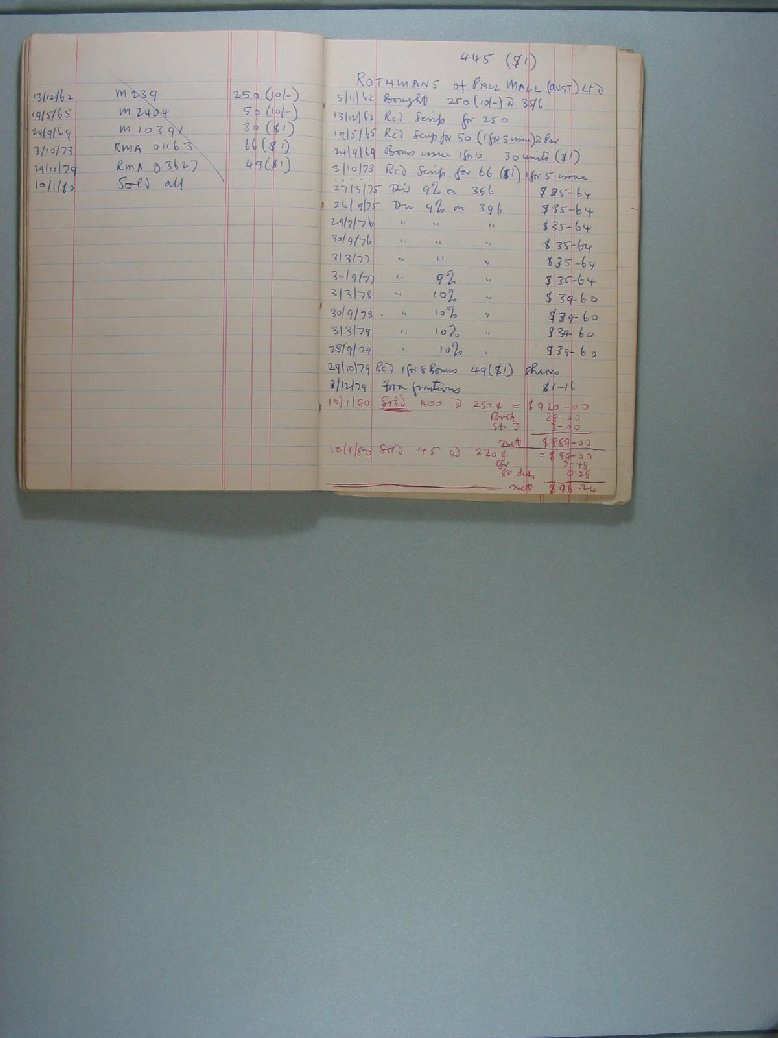 13/12/62 M239 250 (10/-)
19/5/65 M2404 50 (10/-)
24/9/69 M10391 30 ($1)
3/10/73 RMA 01163 66 ($1)
29/10/79 RMA 03627 49 ($1)
10/1/80 Sold all
445 ($1)
ROTHMANS of PALL MALL (AUST) LTD
5/11/62 Bought 250 (10/-) @ 39/6
13/12/62 Rc'd Scrip for 250
19/5/65 Rc'd Scrip for 50 (1 for 5 issue) @ Par
24/9/69 Bonus issue 1 for 10 30 units ($1)
3/10/73 Rc'd Scrip for 66 ($1) 1 for 5 issue
27/3/75 Div 9% on 396 $35-64
26/9/75 Div 9% on 396 $35-64
29/3/76 " " " $35-64
30/9/76 " " " $35-64
3/3/77 " " " $35-64
30/9/77 " 9% " $35-64
3/3/78 " 10% " $39-60
30/9/78 " 10% " $39-60
3/3/79 " 10% " $39-60
28/9/79 " 10% " $39-60
29/10/79 Rc'd 1 for 8 Bonus 49 ($1) Shares
3/12/79 from fractions $1-16
10/1/80 Sold 400 @ 230¢ = $920-00
Brok
St. D
Net $889-00
10/1/80 Sold 45 @ 220¢ = $99-00
Br 2-48
St dut. 0-28
net $96-24